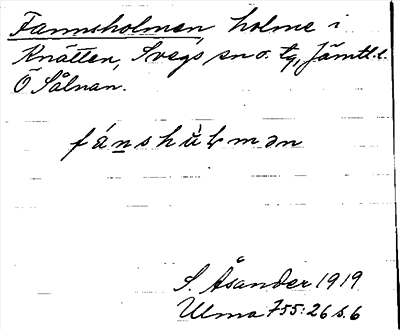 Fannsholmen, holme i
Knätten, Svegs sn o. tg, Jämtl. l.
Ö Sålnan.
fánshùɫmən
S. Åsander 1919
Ulma 755:26 s. 6